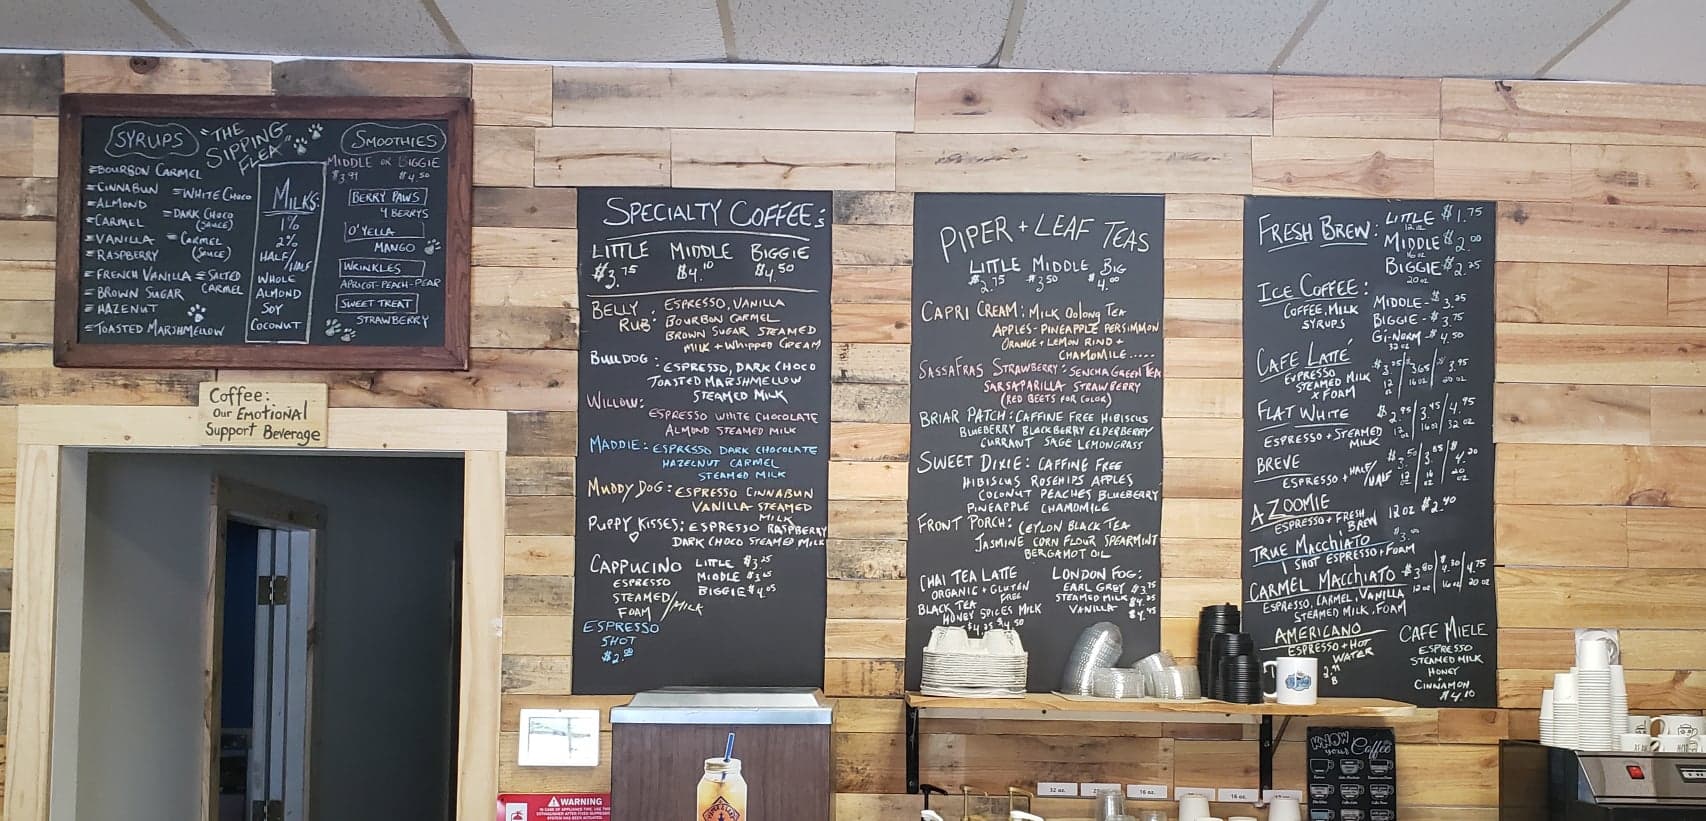 SYRUPS
"THE SIPPING FLEA"
BOURBON CARMEL
CINNABUN
WHITE CHOCO
ALMOND
DARK CHOCO (SAUCE)
CARMEL
VANILLA
CARMEL (SAUCE)
RASPBERRY
FRENCH VANILLA
SALTED CARMEL
BROWN SUGAR
HAZENUT
TOASTED MARSHMELLOW
MILKS:
1%
2%
HALF/HALF
WHOLE
ALMOND
SOY
COCONUT
SMOOTHIES
MIDDLE OR BIGGIE
$3.91 $4.50
BERRY PAWS
4 BERRYS
O'YELLA
MANGO
WRINKLES
APRICOT-PEACH-PEAR
SWEET TREAT
STRAWBERRY
Coffee:
Our EMOTIONAL
Support Beverage
SPECIALTY COFFEE:
LITTLE MIDDLE BIGGIE
$3.75 $4.10 $4.50
BELLY RUB: ESPRESSO, VANILLA
BOURBON CARMEL
BROWN SUGAR STEAMED
MILK + WHIPPED CREAM
BULLDOG: ESPRESSO, DARK CHOCO
TOASTED MARSHMELLOW
STEAMED MILK
WILLOW: ESPRESSO WHITE CHOCOLATE
ALMOND STEAMED MILK
MADDIE: ESPRESSO DARK CHOCOLATE
HAZELNUT CARMEL
STEAMED MILK
MUDDY DOG: ESPRESSO CINNABUN
VANILLA STEAMED
MILK
PUPPY KISSES: ESPRESSO RASPBERRY
DARK CHOCO STEAMED MILK
CAPPUCINO LITTLE $3.25
ESPRESSO MIDDLE $3.65
STEAMED BIGGIE $4.05
FOAM/MILK
ESPRESSO
SHOT
$2.00
PIPER + LEAF TEAS
LITTLE MIDDLE BIG
$2.75 $3.50 $4.00
CAPRI CREAM: MILK OOLONG TEA
APPLES-PINEAPPLE PERSIMMON
ORANGE + LEMON RIND +
CHAMOMILE.....
SASSAFRAS STRAWBERRY: SENCHA GREEN TEA
SARSAPARILLA STRAWBERRY
(RED BEETS FOR COLOR)
BRIAR PATCH: CAFFINE FREE HIBISCUS
BLUEBERRY BLACKBERRY ELDERBERRY
CURRANT SAGE LEMONGRASS
SWEET DIXIE: CAFFINE FREE
HIBISCUS ROSEHIPS APPLES
COCONUT PEACHES BLUEBERRY
PINEAPPLE CHAMOMILE
FRONT PORCH: CEYLON BLACK TEA
JASMINE CORN FLOUR SPEARMINT
BERGAMOT OIL
CHAI TEA LATTE
ORGANIC + GLUTEN
FREE
BLACK TEA
HONEY SPICES MILK
$4.25 $4.50
LONDON FOG:
EARL GREY $3.75
STEAMED MILK $4.25
VANILLA
FRESH BREW: LITTLE $1.75
12 oz
MIDDLE $2.00
16 oz
BIGGIE $2.25
20 oz
ICE COFFEE:
COFFEE, MILK
SYRUPS
MIDDLE - $3.25
BIGGIE - $3.75
GI-NORM - $4.50
32 oz
CAFE LATTÉ
EXPRESSO
STEAMED MILK
x FOAM
$3.25/3.65/$3.95
12 oz 16 oz 20 oz
FLAT WHITE $2.95/3.45/4.95
ESPRESSO + STEAMED
MILK
12 oz 16 oz 32 oz
BREVE $3.50/3.85/$4.20
ESPRESSO + HALF/HALF
12 oz 16 oz 20 oz
A ZOOMIE
ESPRESSO + FRESH
BREW 12 OZ $2.40
TRUE MACCHIATO
1 SHOT ESPRESSO + FOAM
CARMEL MACCHIATO $3.80/4.30/4.75
12 oz 16 oz 20 oz
ESPRESSO, CARMEL, VANILLA
STEAMED MILK, FOAM
AMERICANO
ESPRESSO + HOT
WATER
CAFE MIELE
ESPRESSO
STEAMED MILK
HONEY
CINNAMON
$4.10
WARNING
KNOW YOUR Coffee
32 oz.
16 oz.
16 oz.